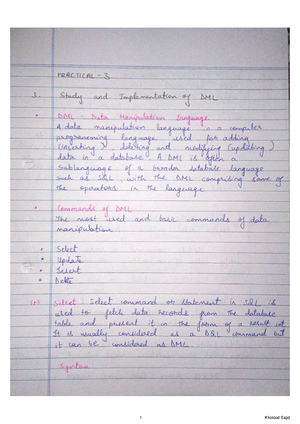 PRACTICAL - 3
3. Study and Implementation of DML
DML - Data Manipulation Language
A data manipulation language is a computer
programming language used for adding
(inserting), deleting and modifying (updating)
data in a database. A DML is often a
sublanguage of a broader database language
such as SQL, with the DML comprising some of
the operators in the language
Commands of DML
The most used and basic commands of data
manipulation
Select
Update
Insert
Delete
Select Select command or statement in SQL is
used to fetch data records from the database
table and present it in the form of a result set
It is usually considered as a DQL command but
it can be considered as DML.
Syntax
1
Kholood Sajid